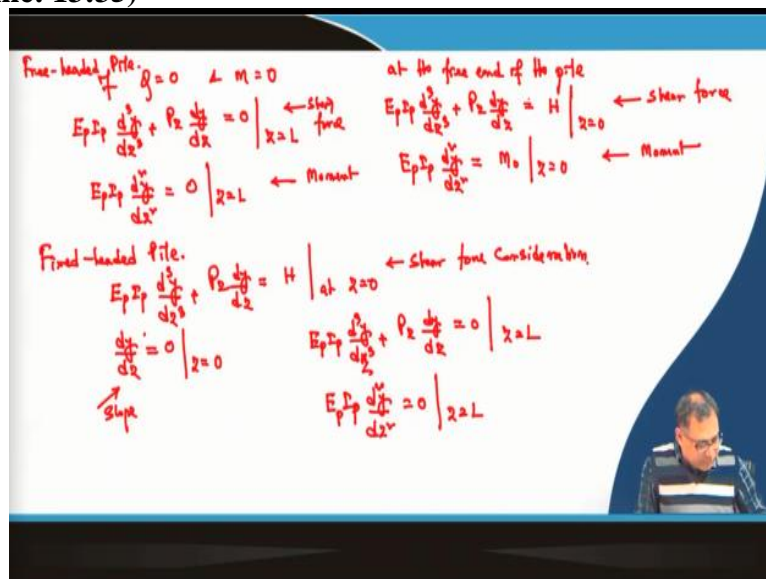 Free-headed Pile.
if Q=0 & m=0
E_p I_p d³y/dz³ + P_z dy/dz = 0 |_{z=L} ← Shear force
E_p I_p d²y/dz² = 0 |_{z=L} ← Moment
at the free end of the pile
E_p I_p d³y/dz³ + P_z dy/dz = H |_{z=0} ← Shear force
E_p I_p d²y/dz² = M_0 |_{z=0} ← Moment
Fixed-headed Pile.
E_p I_p d³y/dz³ + P_z dy/dz = H |_{at z=0} ← Shear force Consideration.
dy/dz = 0 |_{z=0}
Slope
E_p I_p d³y/dz³ + P_z dy/dz = 0 |_{z=L}
E_p I_p d²y/dz² = 0 |_{z=L}